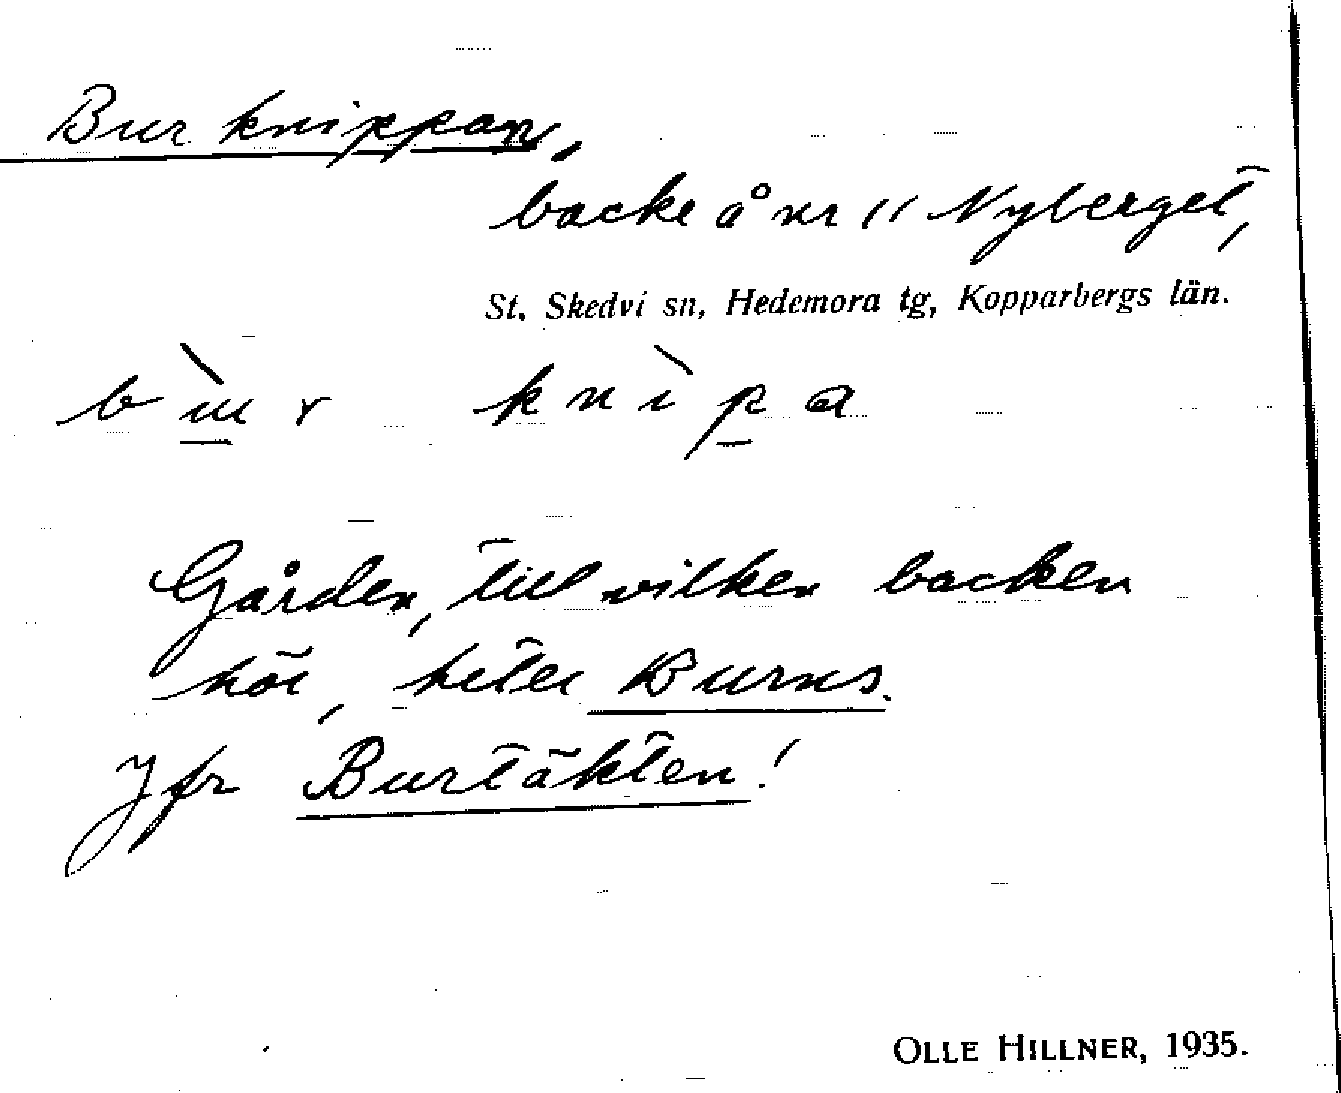 Burknippan,
backe å nr 11 Nyberget,
St. Skedvi sn, Hedemora tg, Kopparbergs län.
Gården, till vilken backen
hör, heter Burns.
Jfr Burtäkten!
OLLE HILLNER, 1935.